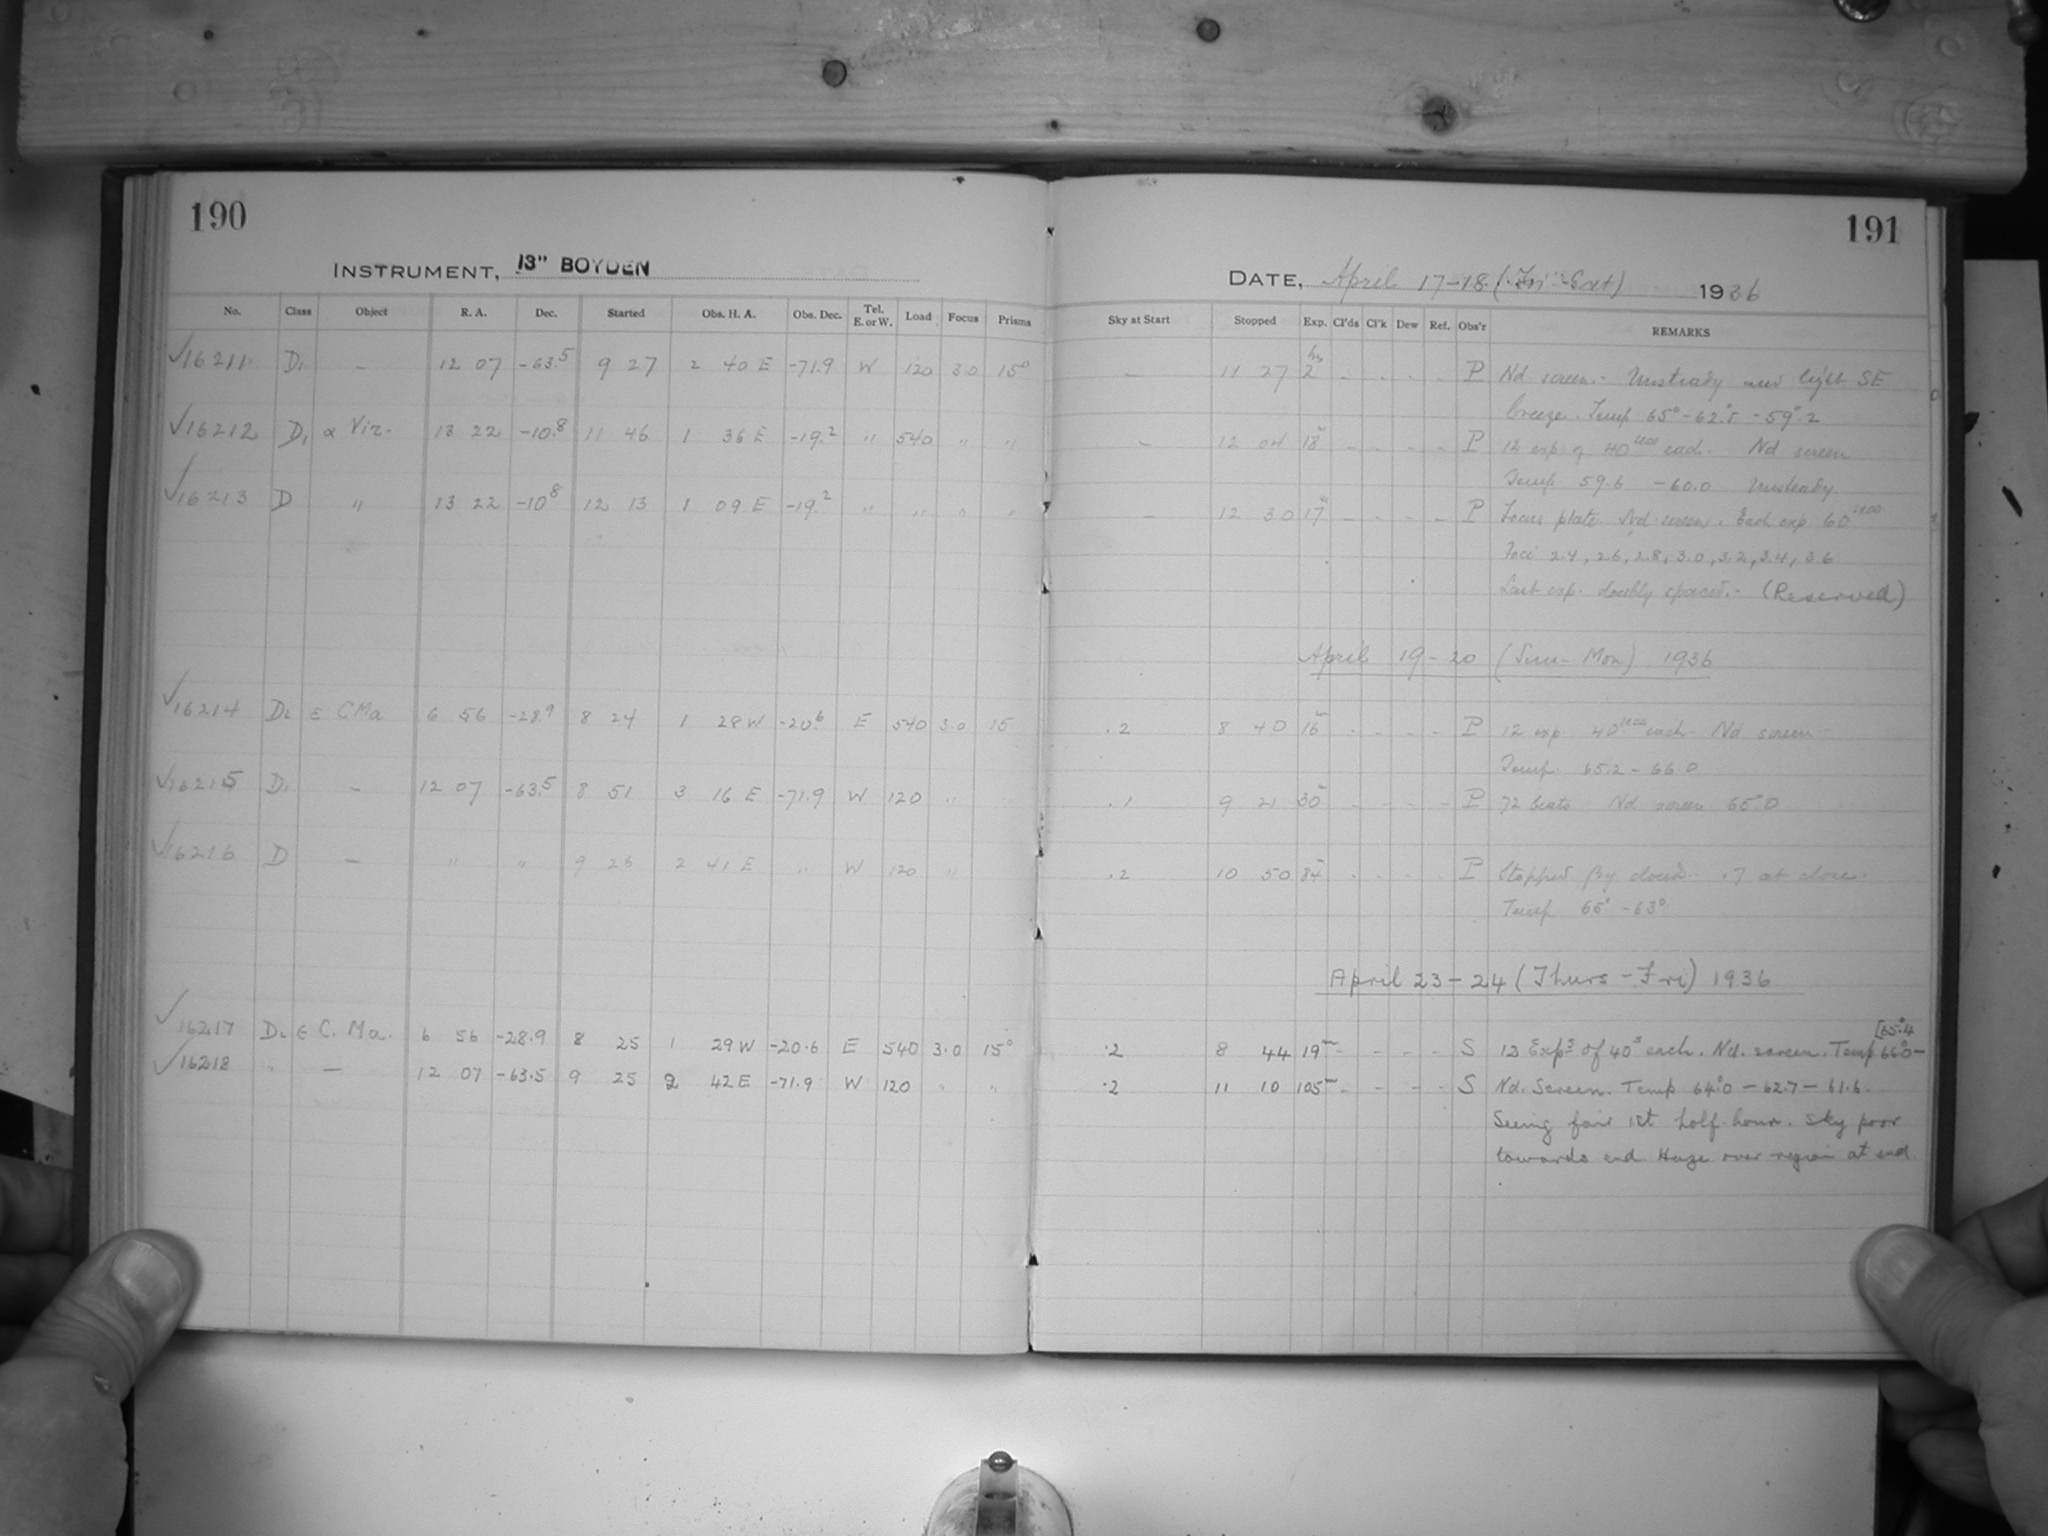 190
INSTRUMENT, 13" BOYDEN
No. Class Object R. A. Dec. Started Obs. H. A. Obs. Dec. Tel. E. or W. Load Focus Prisms
√16211 D1 – 12 07 -63.5 9 27 2 40 E -71.9 W 120 3.0 15°
√16212 D1 α Vir. 13 22 -10.8 11 46 1 36 E -19.2 " 540 " "
√16213 D " 13 22 -10.8 12 13 1 09 E -19.2 " " " "
√16214 D2 ε CMa 6 56 -28.9 8 24 1 28 W -20.6 E 540 3.0 15
√16215 D1 – 12 07 -63.5 8 51 3 16 E -71.9 W 120 "
√16216 D – " " 9 26 2 41 E " W 120 "
√16217 D2 ε C. Ma. 6 56 -28.9 8 25 1 29 W -20.6 E 540 3.0 15°
√16218 " – 12 07 -63.5 9 25 2 42 E -71.9 W 120 " "
191
DATE, April 17-18 (Fri-Sat) 1936
Sky at Start Stopped Exp. Cl'ds Cl'k Dew Ref. Obs'r REMARKS
– 11 27 2 hrs - - - - P Nd screen. - Unsteady and light SE
breeze. Temp 65° - 62.°5 - 59.°2
– 12 04 18m - - - - P 12 exp of 40 secs each. Nd screen
Temp 59.6 - 60.0 Unsteady
– 12 30 17m - - - - P Focus plate. Nd screen. Each exp 60 secs
Foci 2.4, 2.6, 2.8, 3.0, 3.2, 3.4, 3.6
Last exp. doubly spaced. - (Reserved)
April 19-20 (Sun-Mon) 1936
.2 8 40 16m - - - - P 12 exp. 40 secs each - Nd screen -
Temp. 65.2 - 66.0
.1 9 21 30m - - - - P 72 beats Nd screen 65.°0
.2 10 50 84m - - - - P Stopped by clouds. .7 at close.
Temp 65° - 63°
April 23-24 (Thurs-Fri) 1936
[65.°4
.2 8 44 19m - - - - S 12 Exps of 40s each. Nd. screen. Temp 66.°0 -
.2 11 10 105m - - - - S Nd. Screen. Temp 64.°0 - 62.7 - 61.6.
Seeing fair 1st half hour. Sky poor
towards end Haze over region at end.